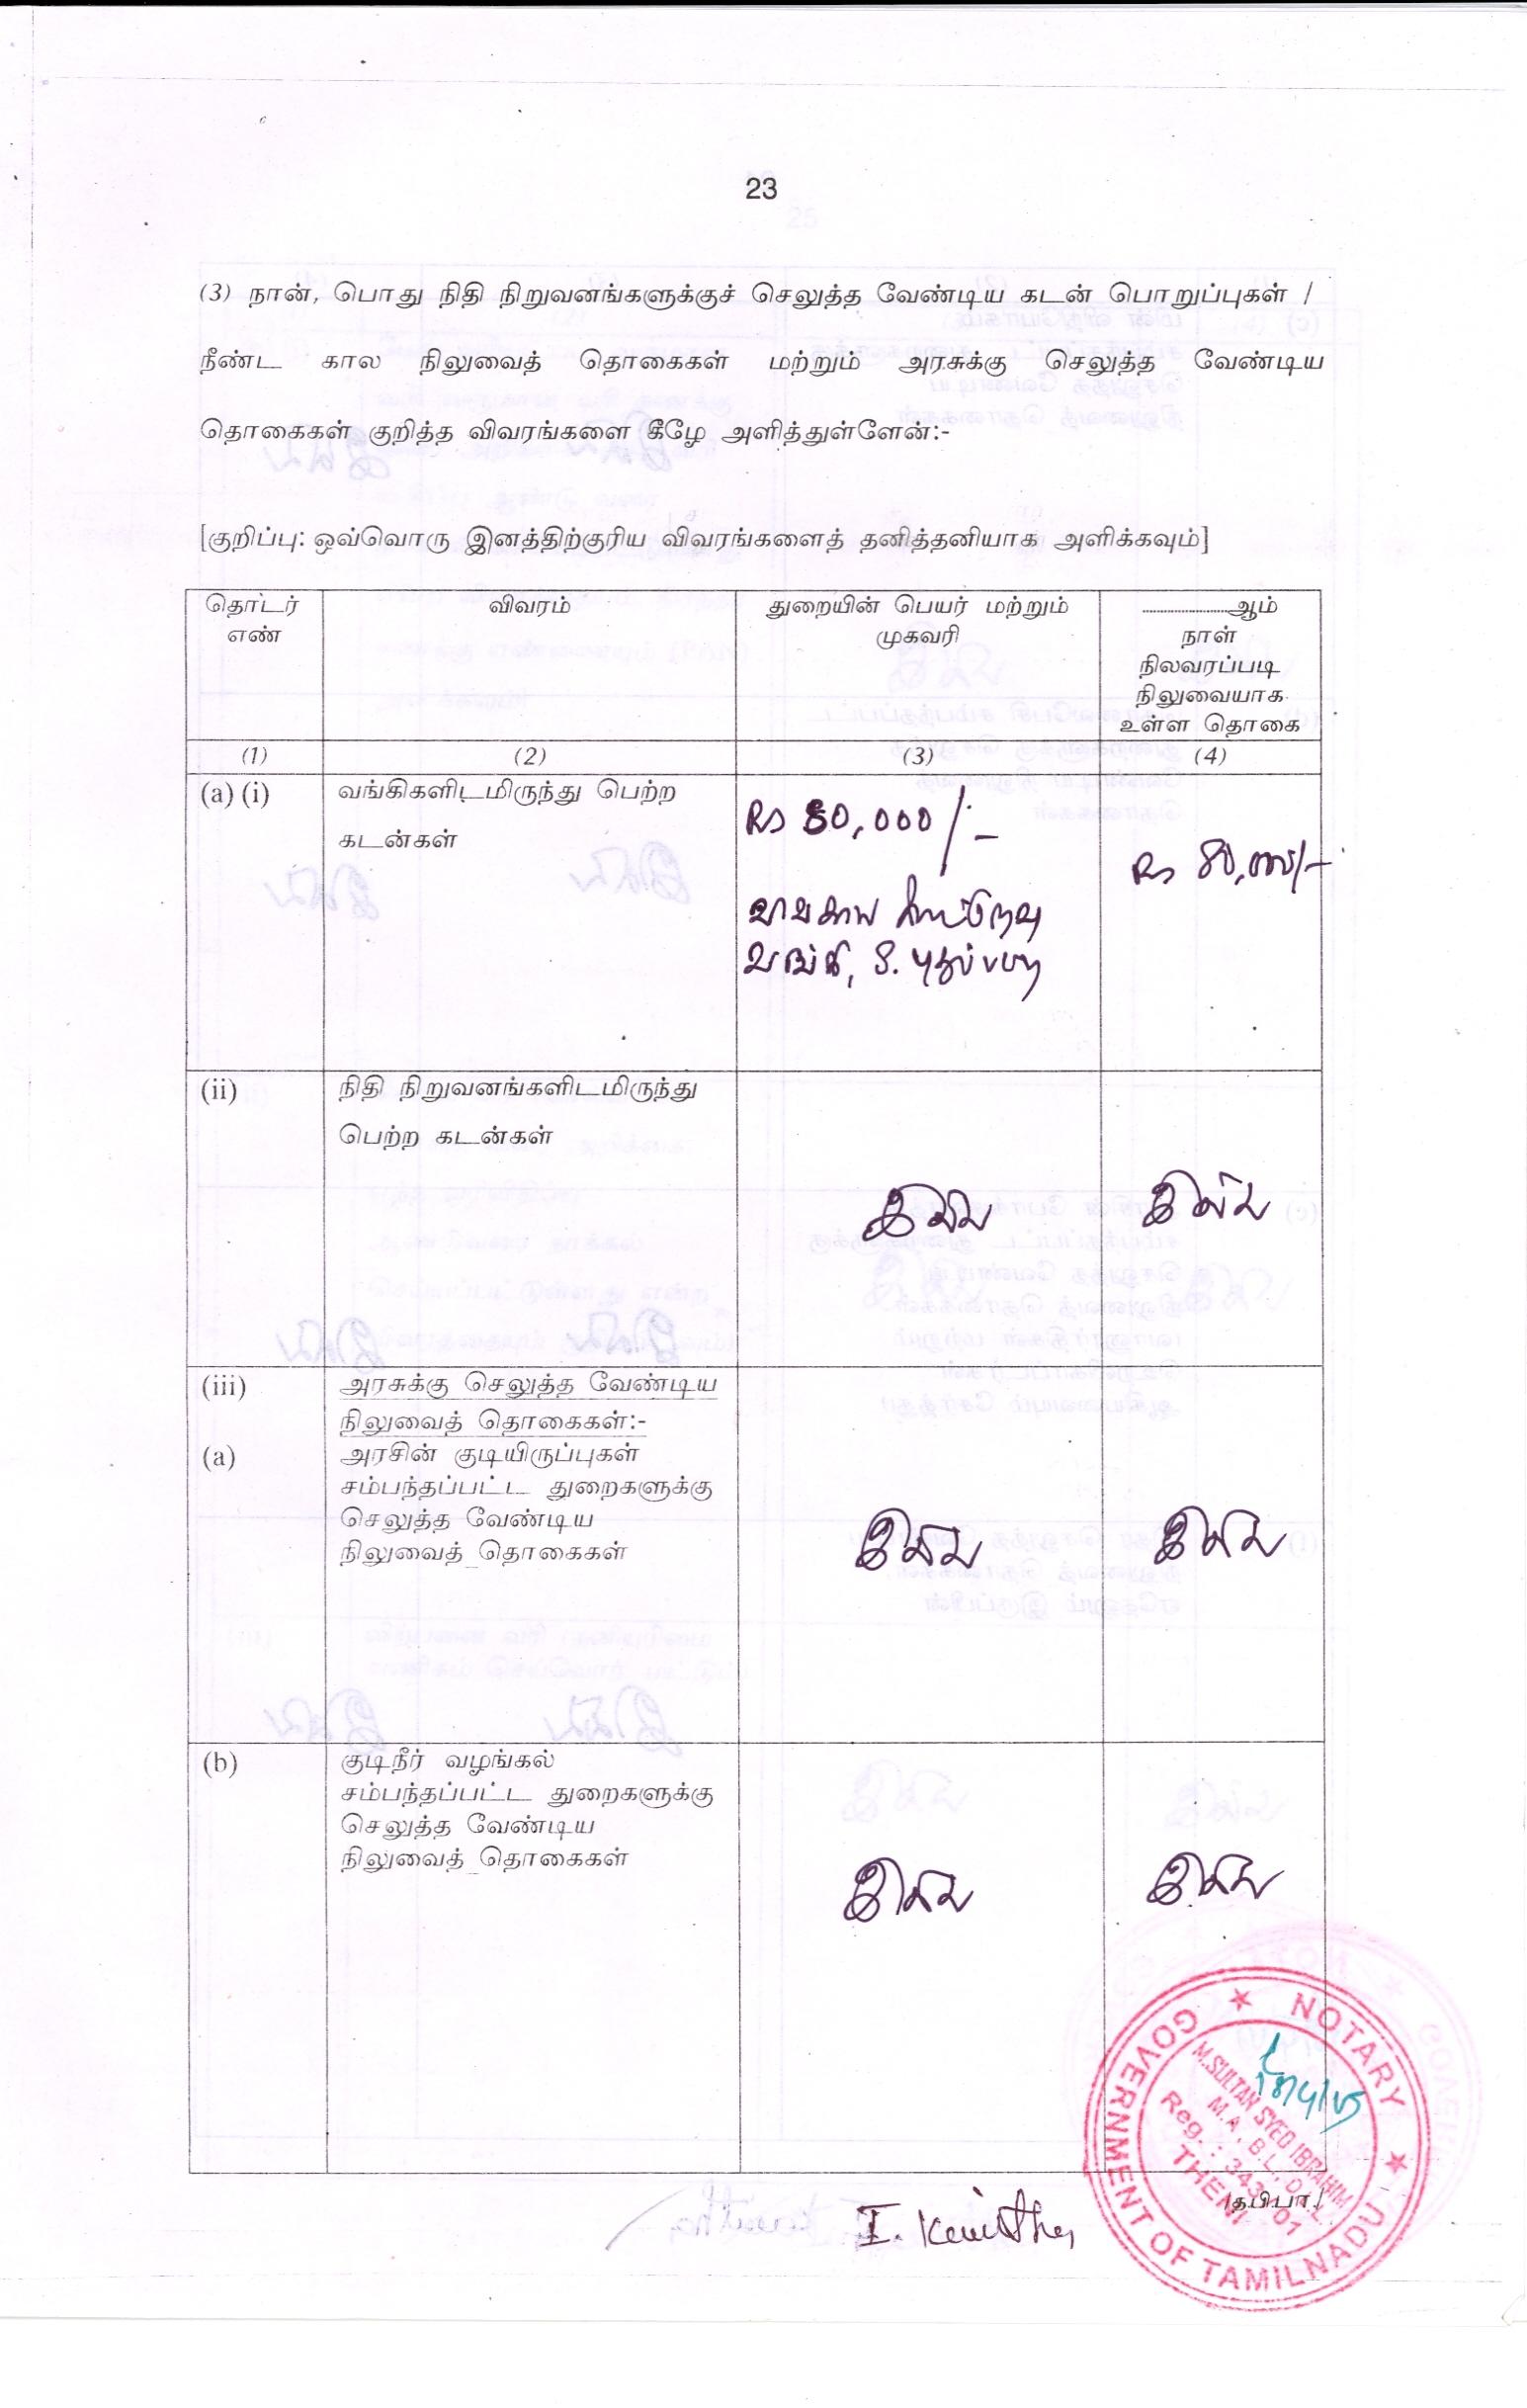 23
(3) நான், பொது நிதி நிறுவனங்களுக்குச் செலுத்த வேண்டிய கடன் பொறுப்புகள் /
நீண்ட கால நிலுவைத் தொகைகள் மற்றும் அரசுக்கு செலுத்த வேண்டிய
தொகைகள் குறித்த விவரங்களை கீழே அளித்துள்ளேன்:-
[குறிப்பு: ஒவ்வொரு இனத்திற்குரிய விவரங்களைத் தனித்தனியாக அளிக்கவும்]
தொடர்
எண்
விவரம்
துறையின் பெயர் மற்றும்
முகவரி
........................ஆம்
நாள்
நிலவரப்படி
நிலுவையாக
உள்ள தொகை
(1) (2) (3) (4)
(a) (i)
வங்கிகளிடமிருந்து பெற்ற
கடன்கள்
Rs 80,000/-
வங்கி,
Rs 80,000/-
(ii)
நிதி நிறுவனங்களிடமிருந்து
பெற்ற கடன்கள்
இல்லை
இல்லை
(iii)
அரசுக்கு செலுத்த வேண்டிய
நிலுவைத் தொகைகள்:-
(a)
அரசின் குடியிருப்புகள்
சம்பந்தப்பட்ட துறைகளுக்கு
செலுத்த வேண்டிய
நிலுவைத் தொகைகள்
இல்லை
இல்லை
(b)
குடிநீர் வழங்கல்
சம்பந்தப்பட்ட துறைகளுக்கு
செலுத்த வேண்டிய
நிலுவைத் தொகைகள்
இல்லை
இல்லை
NOTARY
GOVERNMENT OF TAMILNADU
M.SULTAN SYED IBRAHIM
M.A., B.L.,
THENI
த.பி.பா./
I. Kavitha